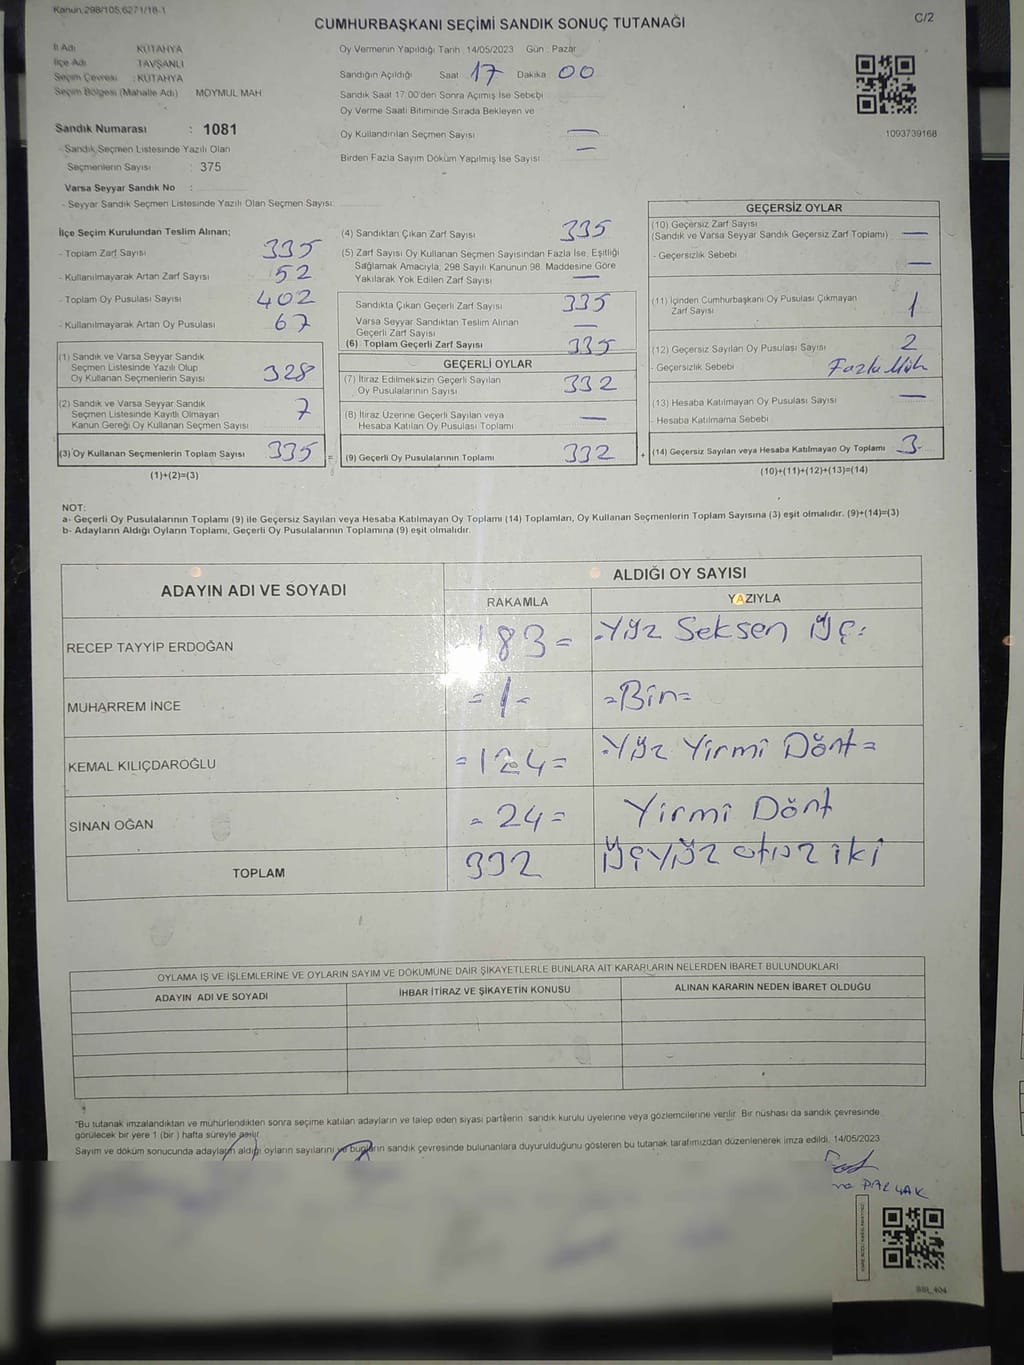 Kanun;298/105,6271/18-1
CUMHURBAŞKANI SEÇİMİ SANDIK SONUÇ TUTANAĞI
C/2
İl Adı KÜTAHYA
İlçe Adı TAVŞANLI
Seçim Çevresi : KÜTAHYA
Seçim Bölgesi (Mahalle Adı) MOYMUL MAH
Oy Vermenin Yapıldığı Tarih :14/05/2023 Gün : Pazar
Sandığın Açıldığı Saat 17 Dakika 00
Sandık Saat 17:00'den Sonra Açımış İse Sebebi
Oy Verme Saati Bitiminde Sırada Bekleyen ve
Oy Kullandırılan Seçmen Sayısı —
Birden Fazla Sayım Döküm Yapılmış İse Sayısı —
1093739168
Sandık Numarası : 1081
Sandık Seçmen Listesinde Yazılı Olan
Seçmenlerin Sayısı : 375
Varsa Seyyar Sandık No :
- Seyyar Sandık Seçmen Listesinde Yazılı Olan Seçmen Sayısı:
İlçe Seçim Kurulundan Teslim Alınan;
- Toplam Zarf Sayısı 335
- Kullanılmayarak Artan Zarf Sayısı 52
- Toplam Oy Pusulası Sayısı 402
- Kullanılmayarak Artan Oy Pusulası 67
(1) Sandık ve Varsa Seyyar Sandık
Seçmen Listesinde Yazılı Olup
Oy Kullanan Seçmenlerin Sayısı 328
(2) Sandık ve Varsa Seyyar Sandık
Seçmen Listesinde Kayıtlı Olmayan
Kanun Gereği Oy Kullanan Seçmen Sayısı 7
(3) Oy Kullanan Seçmenlerin Toplam Sayısı 335 =
(1)+(2)=(3)
(4) Sandıktan Çıkan Zarf Sayısı 335
(5) Zarf Sayısı Oy Kullanan Seçmen Sayısından Fazla İse, Eşitliği
Sağlamak Amacıyla, 298 Sayılı Kanunun 98. Maddesine Göre
Yakılarak Yok Edilen Zarf Sayısı —
Sandıkta Çıkan Geçerli Zarf Sayısı 335
Varsa Seyyar Sandıktan Teslim Alınan
Geçerli Zarf Sayısı —
(6) Toplam Geçerli Zarf Sayısı 335
GEÇERLİ OYLAR
(7) İtiraz Edilmeksizin Geçerli Sayılan
Oy Pusulalarının Sayısı 332
(8) İtiraz Üzerine Geçerli Sayılan veya
Hesaba Katılan Oy Pusulası Toplamı —
(9) Geçerli Oy Pusulalarının Toplamı 332 +
GEÇERSİZ OYLAR
(10) Geçersiz Zarf Sayısı
(Sandık ve Varsa Seyyar Sandık Geçersiz Zarf Toplamı) —
- Geçersizlik Sebebi —
(11) İçinden Cumhurbaşkanı Oy Pusulası Çıkmayan
Zarf Sayısı 1
(12) Geçersiz Sayılan Oy Pusulası Sayısı 2
- Geçersizlik Sebebi Fazla Müh
(13) Hesaba Katılmayan Oy Pusulası Sayısı —
- Hesaba Katılmama Sebebi
(14) Geçersiz Sayılan veya Hesaba Katılmayan Oy Toplamı 3
(10)+(11)+(12)+(13)=(14)
NOT:
a- Geçerli Oy Pusulalarının Toplamı (9) ile Geçersiz Sayılan veya Hesaba Katılmayan Oy Toplamı (14) Toplamları, Oy Kullanan Seçmenlerin Toplam Sayısına (3) eşit olmalıdır. (9)+(14)=(3)
b- Adayların Aldığı Oyların Toplamı, Geçerli Oy Pusulalarının Toplamına (9) eşit olmalıdır.
ADAYIN ADI VE SOYADI ALDIĞI OY SAYISI
RAKAMLA YAZIYLA
RECEP TAYYİP ERDOĞAN 183= Yüz Seksen Üç
MUHARREM İNCE =1= =Bir=
KEMAL KILIÇDAROĞLU =124= Yüz Yirmi Dört=
SİNAN OĞAN =24= Yirmi Dört
TOPLAM 332 Üçyüz otuz iki
OYLAMA İŞ VE İŞLEMLERİNE VE OYLARIN SAYIM VE DÖKÜMÜNE DAİR ŞİKAYETLERLE BUNLARA AİT KARARLARIN NELERDEN İBARET BULUNDUKLARI
ADAYIN ADI VE SOYADI İHBAR İTİRAZ VE ŞİKAYETİN KONUSU ALINAN KARARIN NEDEN İBARET OLDUĞU
*Bu tutanak imzalandıktan ve mühürlendikten sonra seçime katılan adayların ve talep eden siyasi partilerin sandık kurulu üyelerine veya gözlemcilerine verilir. Bir nüshası da sandık çevresinde
görülecek bir yere 1 (bir ) hafta süreyle asılır.
Sayım ve döküm sonucunda adayların aldığı oyların sayılarını ve bunların sandık çevresinde bulunanlara duyurulduğunu gösteren bu tutanak tarafımızdan düzenlenerek imza edildi. 14/05/2023